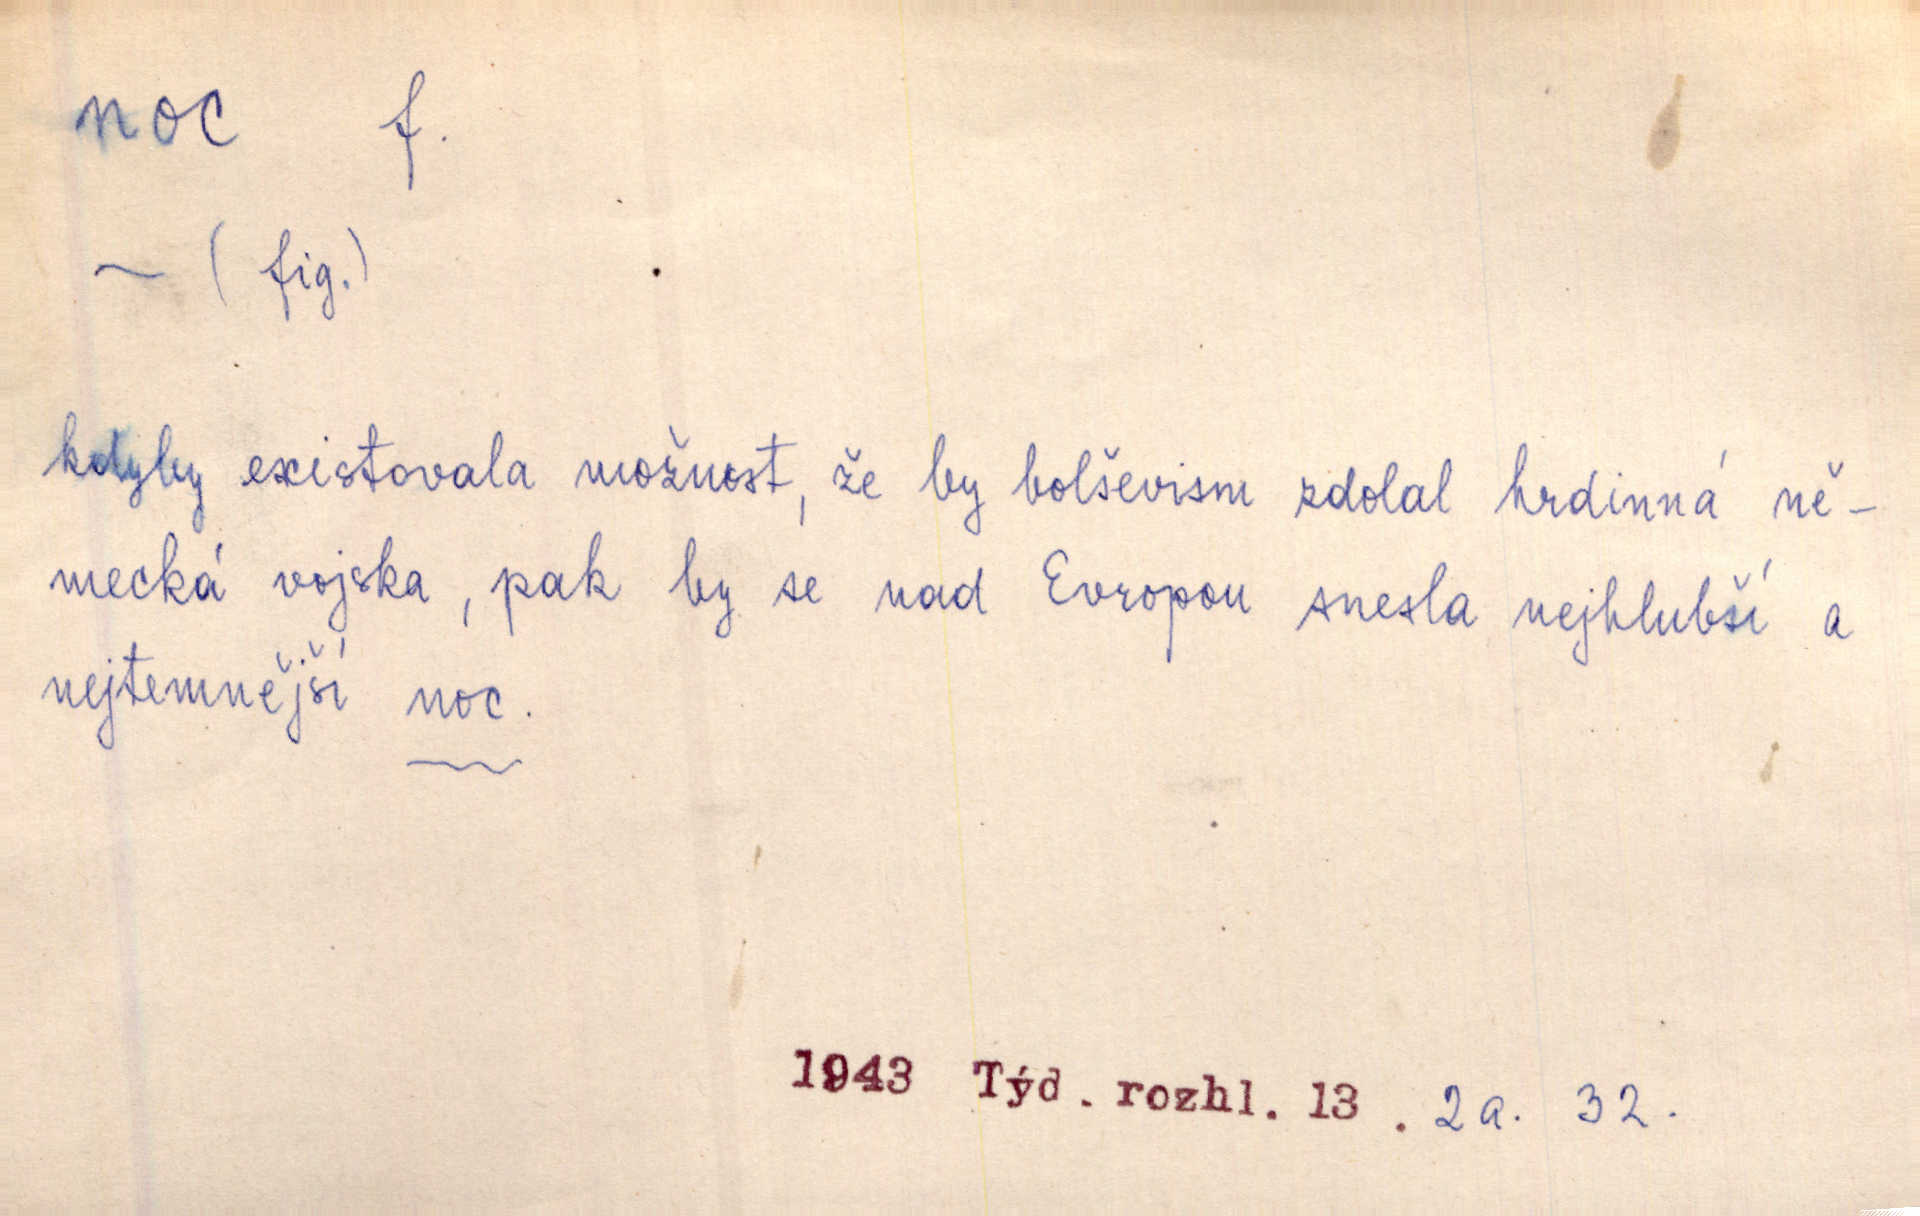 noc f.
~ (fig.)
kdyby existovala možnost, že by bolševism zdolal hrdinná ně-
mecká vojska, pak by se nad Evropou snesla nejhlubší a
nejtemnější noc.
1943 Týd. rozhl. 13. 2a. 32.